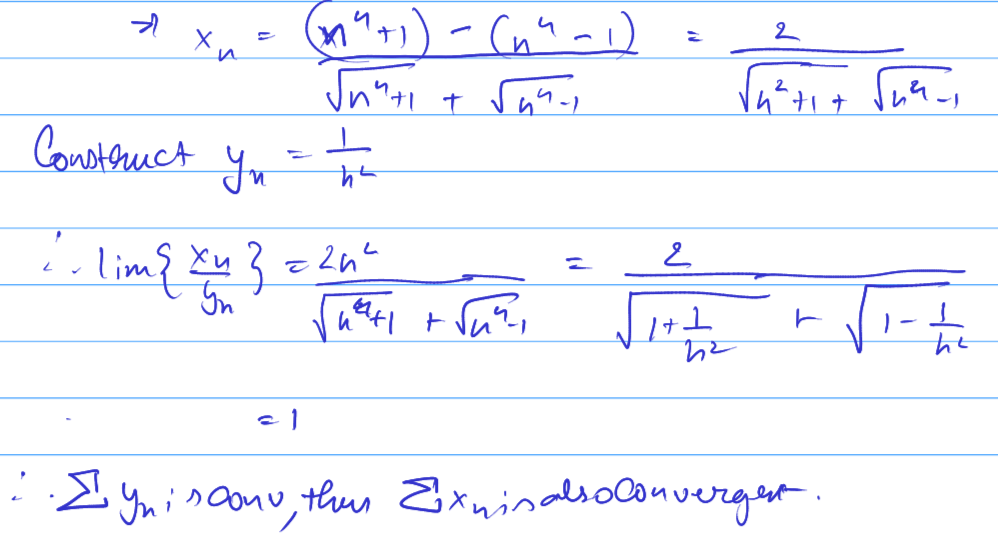 ⇒ xₙ = ((n⁴+1) - (n⁴-1)) / (√(n⁴+1) + √(n⁴-1)) = 2 / (√(n²+1) + √(n⁴-1))
Construct yₙ = 1/n²
∴ lim{xₙ/yₙ} = 2n² / (√(n⁴+1) + √(n⁴-1)) = 2 / (√(1+1/n²) + √(1-1/n²))
= 1
∴ Σyₙ is conv, thus Σxₙ is also Convergent.